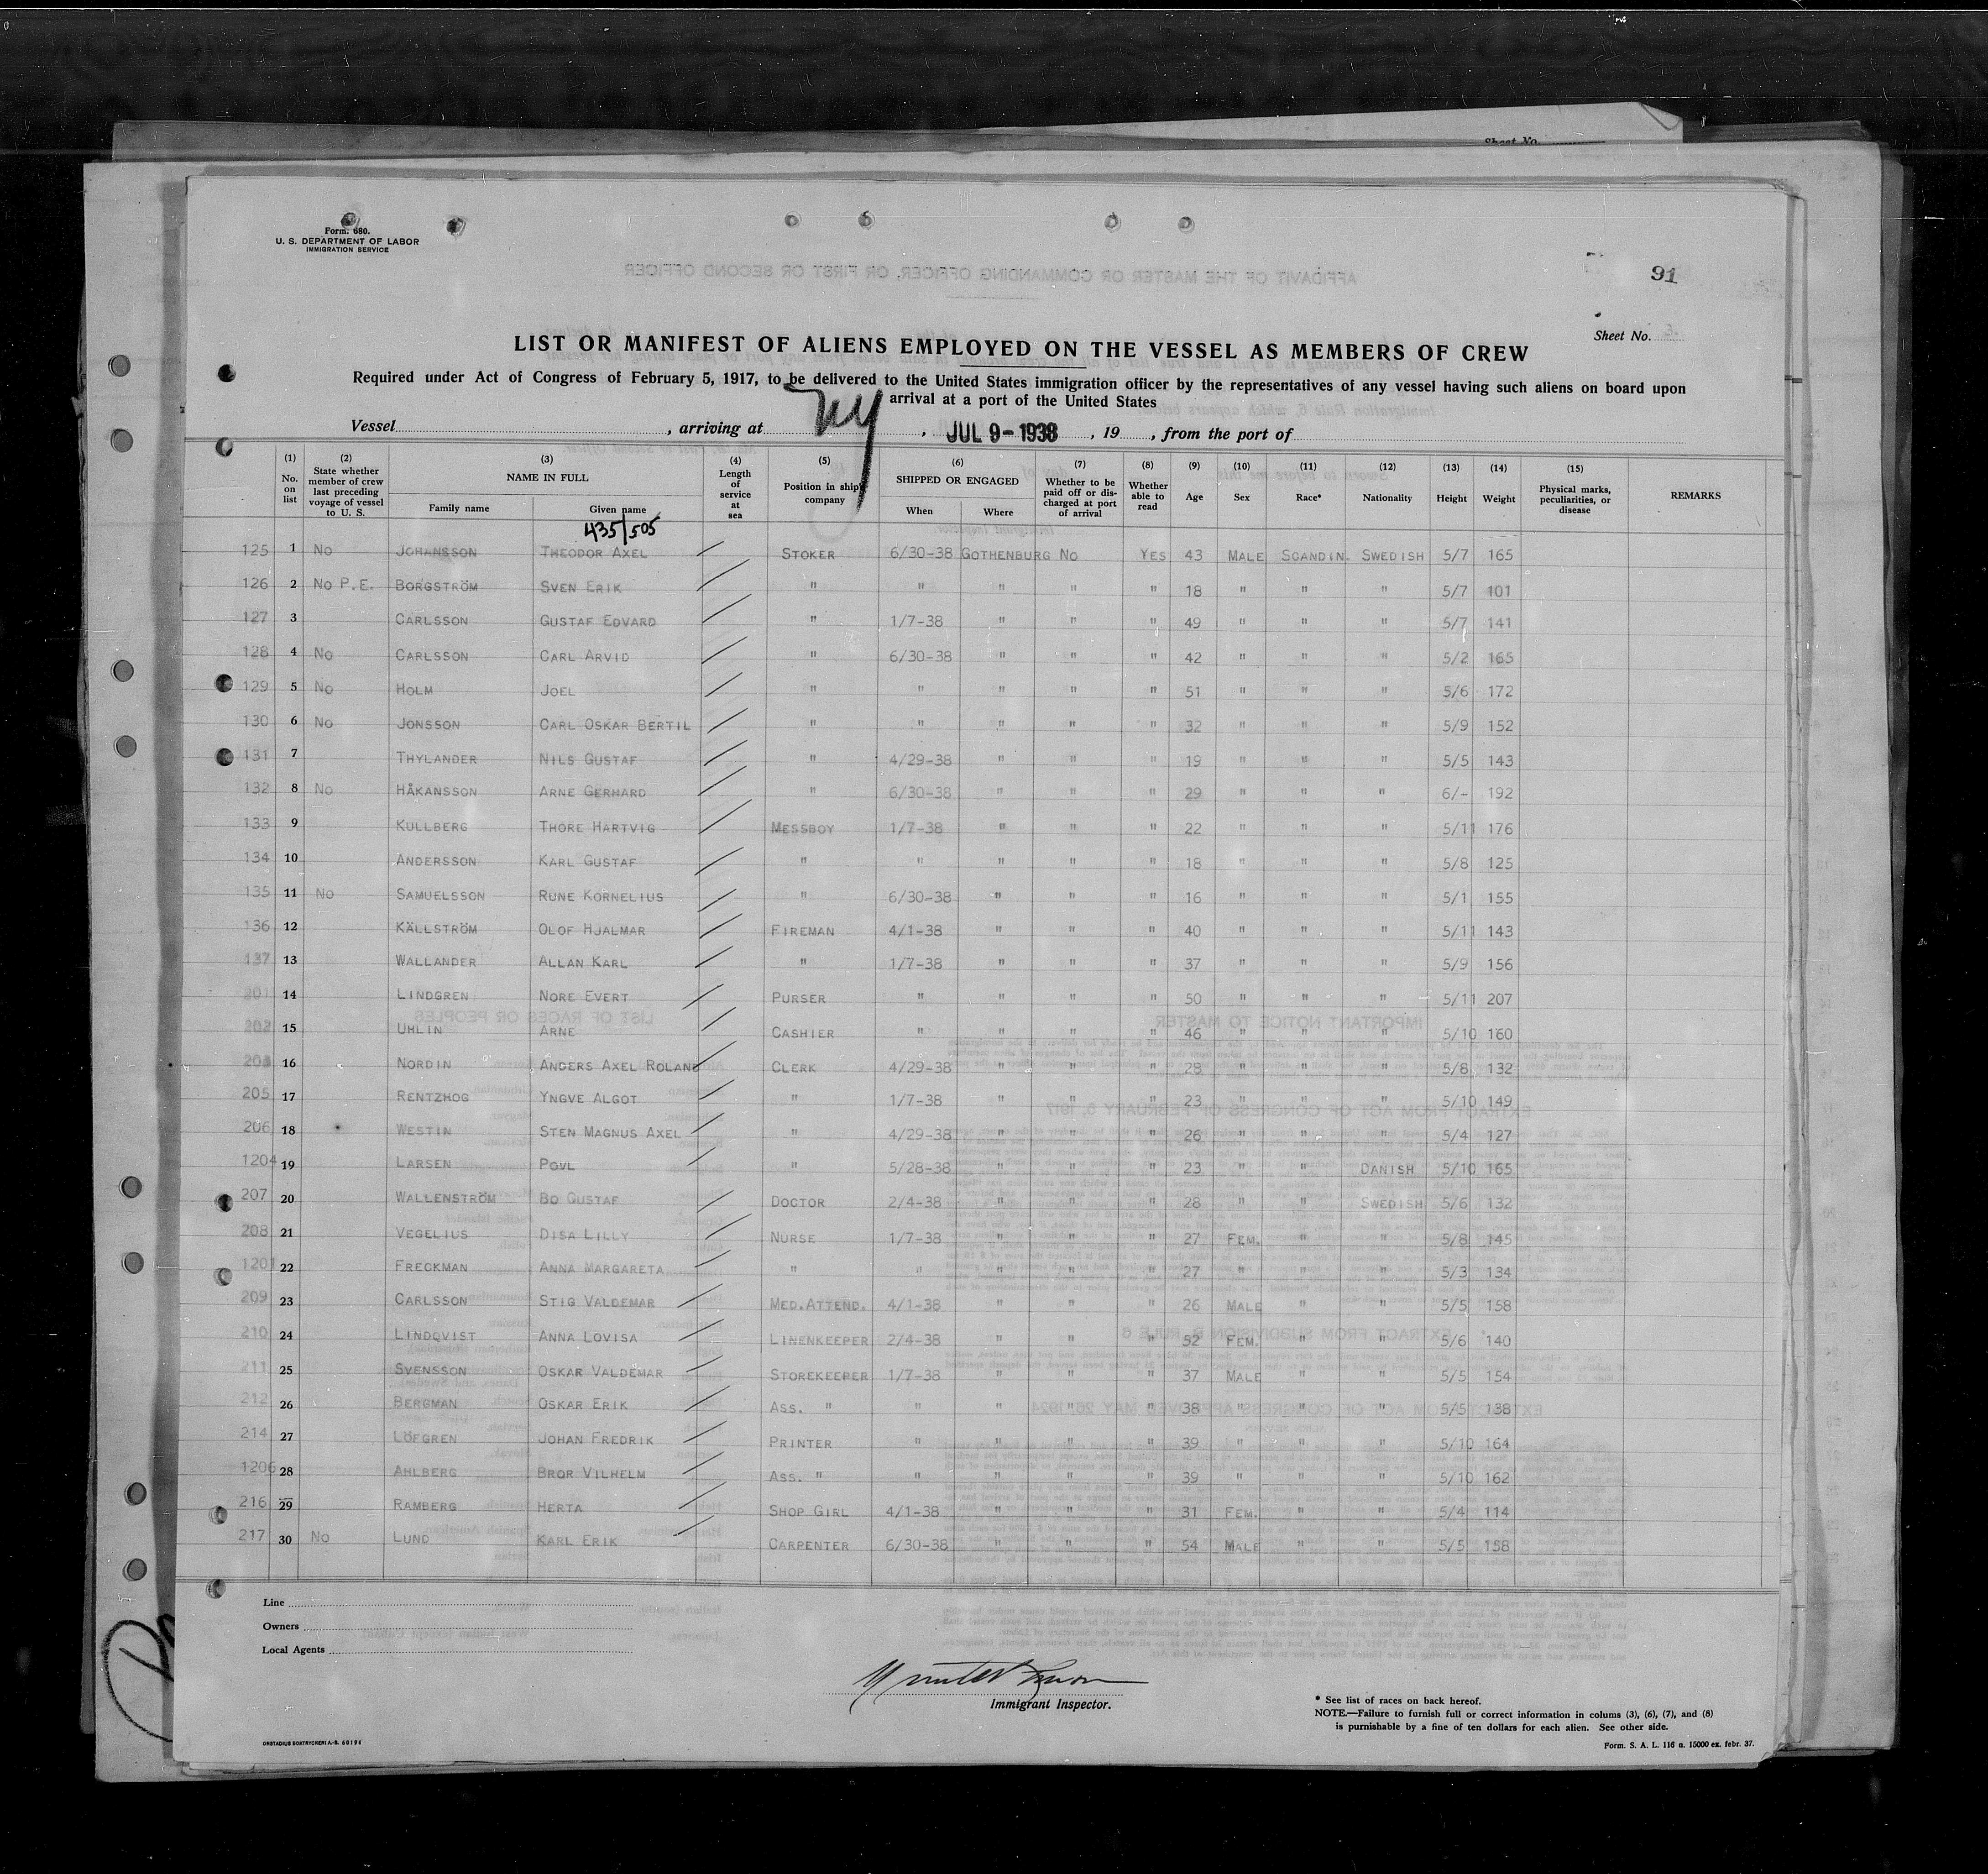 Sheet No.
Form. 680.
U. S. DEPARTMENT OF LABOR
IMMIGRATION SERVICE
91
Sheet No.
LIST OR MANIFEST OF ALIENS EMPLOYED ON THE VESSEL AS MEMBERS OF CREW
Required under Act of Congress of February 5, 1917, to be delivered to the United States immigration officer by the representatives of any vessel having such aliens on board upon
arrival at a port of the United States
Vessel , arriving at NY , JUL 9-1938 , 19 , from the port of
(1) No. on list (2) State whether member of crew last preceding voyage of vessel to U. S. (3) NAME IN FULL Family name Given name (4) Length of service at sea (5) Position in ship's company (6) SHIPPED OR ENGAGED When Where (7) Whether to be paid off or discharged at port of arrival (8) Whether able to read (9) Age (10) Sex (11) Race* (12) Nationality (13) Height (14) Weight (15) Physical marks, peculiarities, or disease REMARKS
435/505
125 1 No JOHANSSON THEODOR AXEL / STOKER 6/30-38 GOTHENBURG No YES 43 MALE SCANDIN. SWEDISH 5/7 165
126 2 No P.E. BORGSTRÖM SVEN ERIK / " " " " " 18 " " " 5/7 101
127 3 CARLSSON GUSTAF EDVARD / " 1/7-38 " " " 49 " " " 5/7 141
128 4 No CARLSSON CARL ARVID / " 6/30-38 " " " 42 " " " 5/2 165
129 5 No HOLM JOEL / " " " " " 51 " " " 5/6 172
130 6 No JONSSON CARL OSKAR BERTIL / " " " " " 32 " " " 5/9 152
131 7 THYLANDER NILS GUSTAF / " 4/29-38 " " " 19 " " " 5/5 143
132 8 No HÅKANSSON ARNE GERHARD / " 6/30-38 " " " 29 " " " 6/- 192
133 9 KULLBERG THORE HARTVIG / MESSBOY 1/7-38 " " " 22 " " " 5/11 176
134 10 ANDERSSON KARL GUSTAF / " " " " " 18 " " " 5/8 125
135 11 No SAMUELSSON RUNE KORNELIUS / " 6/30-38 " " " 16 " " " 5/1 155
136 12 KÄLLSTRÖM OLOF HJALMAR / FIREMAN 4/1-38 " " " 40 " " " 5/11 143
137 13 WALLANDER ALLAN KARL / " 1/7-38 " " " 37 " " " 5/9 156
201 14 LINDGREN NORE EVERT / PURSER " " " " 50 " " " 5/11 207
202 15 UHLIN ARNE / CASHIER " " " " 46 " " " 5/10 160
16 NORDIN ANDERS AXEL ROLAND / CLERK 4/29-38 " " " 28 " " " 5/8 132
205 17 RENTZHOG YNGVE ALGOT / " 1/7-38 " " " 23 " " " 5/10 149
206 18 WESTIN STEN MAGNUS AXEL / " 4/29-38 " " " 26 " " " 5/4 127
1204 19 LARSEN POVL / " 5/28-38 " " " 23 " " DANISH 5/10 165
207 20 WALLENSTRÖM BO GUSTAF / DOCTOR 2/4-38 " " " 28 " " SWEDISH 5/6 132
208 21 VEGELIUS DISA LILLY / NURSE 1/7-38 " " " 27 FEM. " " 5/8 145
1201 22 FRECKMAN ANNA MARGARETA / " " " " " 27 " " " 5/3 134
209 23 CARLSSON STIG VALDEMAR / MED.ATTEND. 4/1-38 " " " 26 MALE " " 5/5 158
210 24 LINDQVIST ANNA LOVISA / LINENKEEPER 2/4-38 " " " 52 FEM. " " 5/6 140
211 25 SVENSSON OSKAR VALDEMAR / STOREKEEPER 1/7-38 " " " 37 MALE " " 5/5 154
212 26 BERGMAN OSKAR ERIK / ASS. " " " " " 38 " " " 5/5 138
214 27 LÖFGREN JOHAN FREDRIK / PRINTER " " " " 39 " " " 5/10 164
1206 28 AHLBERG BROR VILHELM / ASS. " " " " " 39 " " " 5/10 162
216 29 RAMBERG HERTA / SHOP GIRL 4/1-38 " " " 31 FEM. " " 5/4 114
217 30 No LUND KARL ERIK / CARPENTER 6/30-38 " " " 54 MALE " " 5/5 158
Line
Owners
Local Agents
Immigrant Inspector.
* See list of races on back hereof.
NOTE.—Failure to furnish full or correct information in colums (3), (6), (7), and (8)
is punishable by a fine of ten dollars for each alien. See other side.
Form. S. A. L. 116 n. 15000 ex. febr. 37.